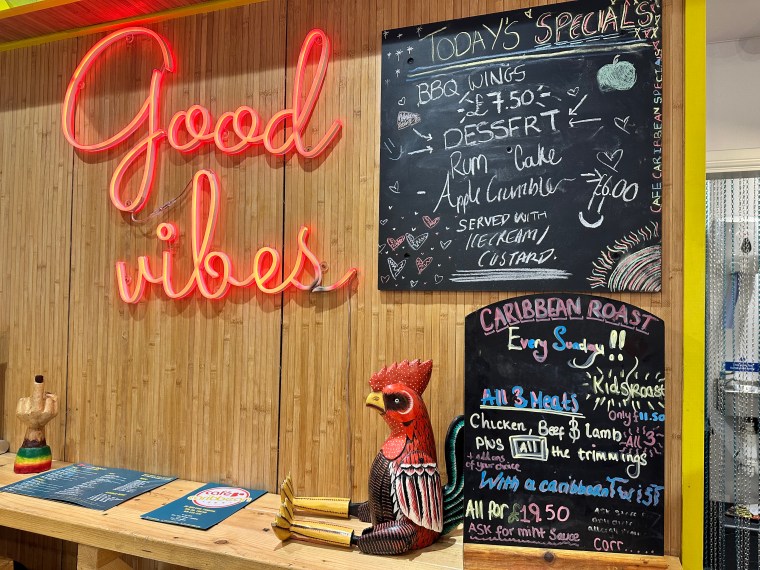 Good
vibes
TODAY'S SPECIALS
BBQ WINGS
£7.50
DESSERT
Rum Cake
- Apple Crumble ~ £6.00
SERVED WITH
ICECREAM/
CUSTARD.
CAFE CARIBBEAN SPECIALS
CARIBBEAN ROAST
Every Sunday!!
Kids Roast
Only £11.50
All 3 Meats
Chicken, Beef & Lamb
All 3
Plus All the trimmings
+ add ons
of your choice
With a caribbean Twist
All For £19.50
ASK for mint Sauce
cafe